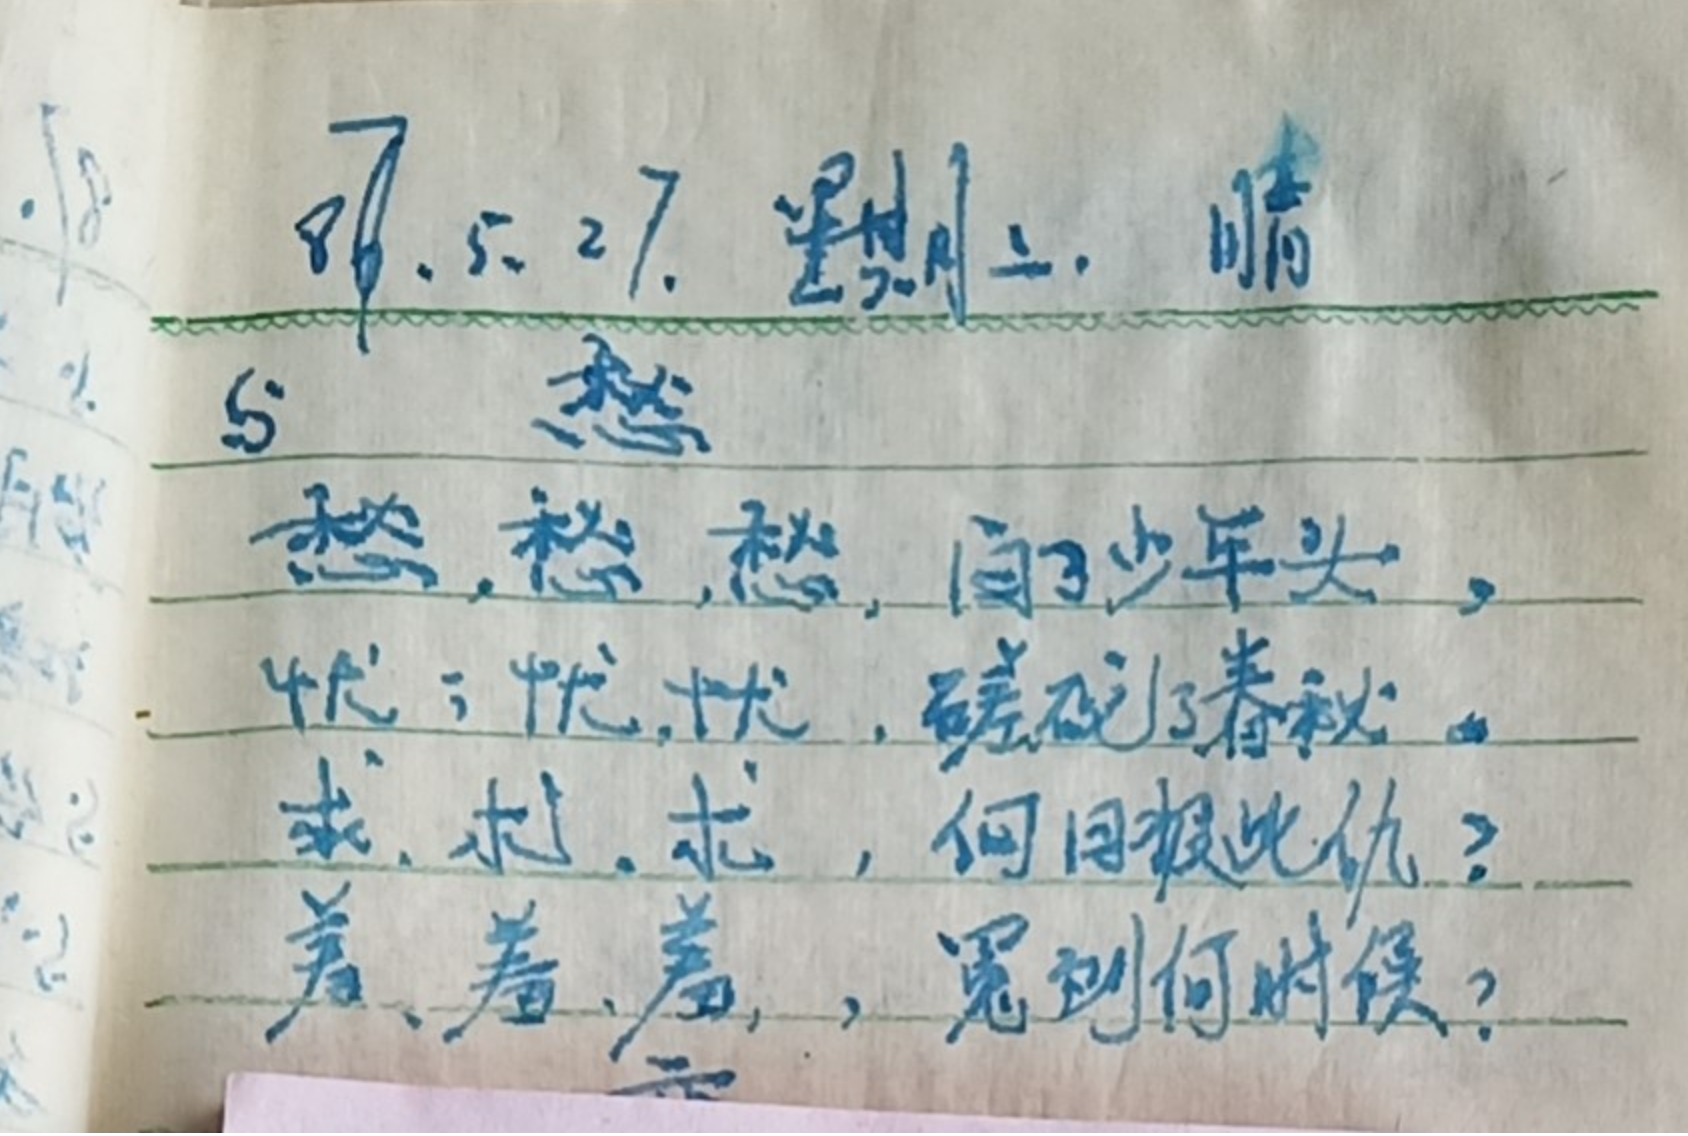 87.5.27. 星期三. 晴
5 愁
愁,愁,愁,白了少年头,
忧;忧,忧,蹉砣了春秋.
求,求.求,何日报此仇?
羞、羞、羞,,冤到何时候?